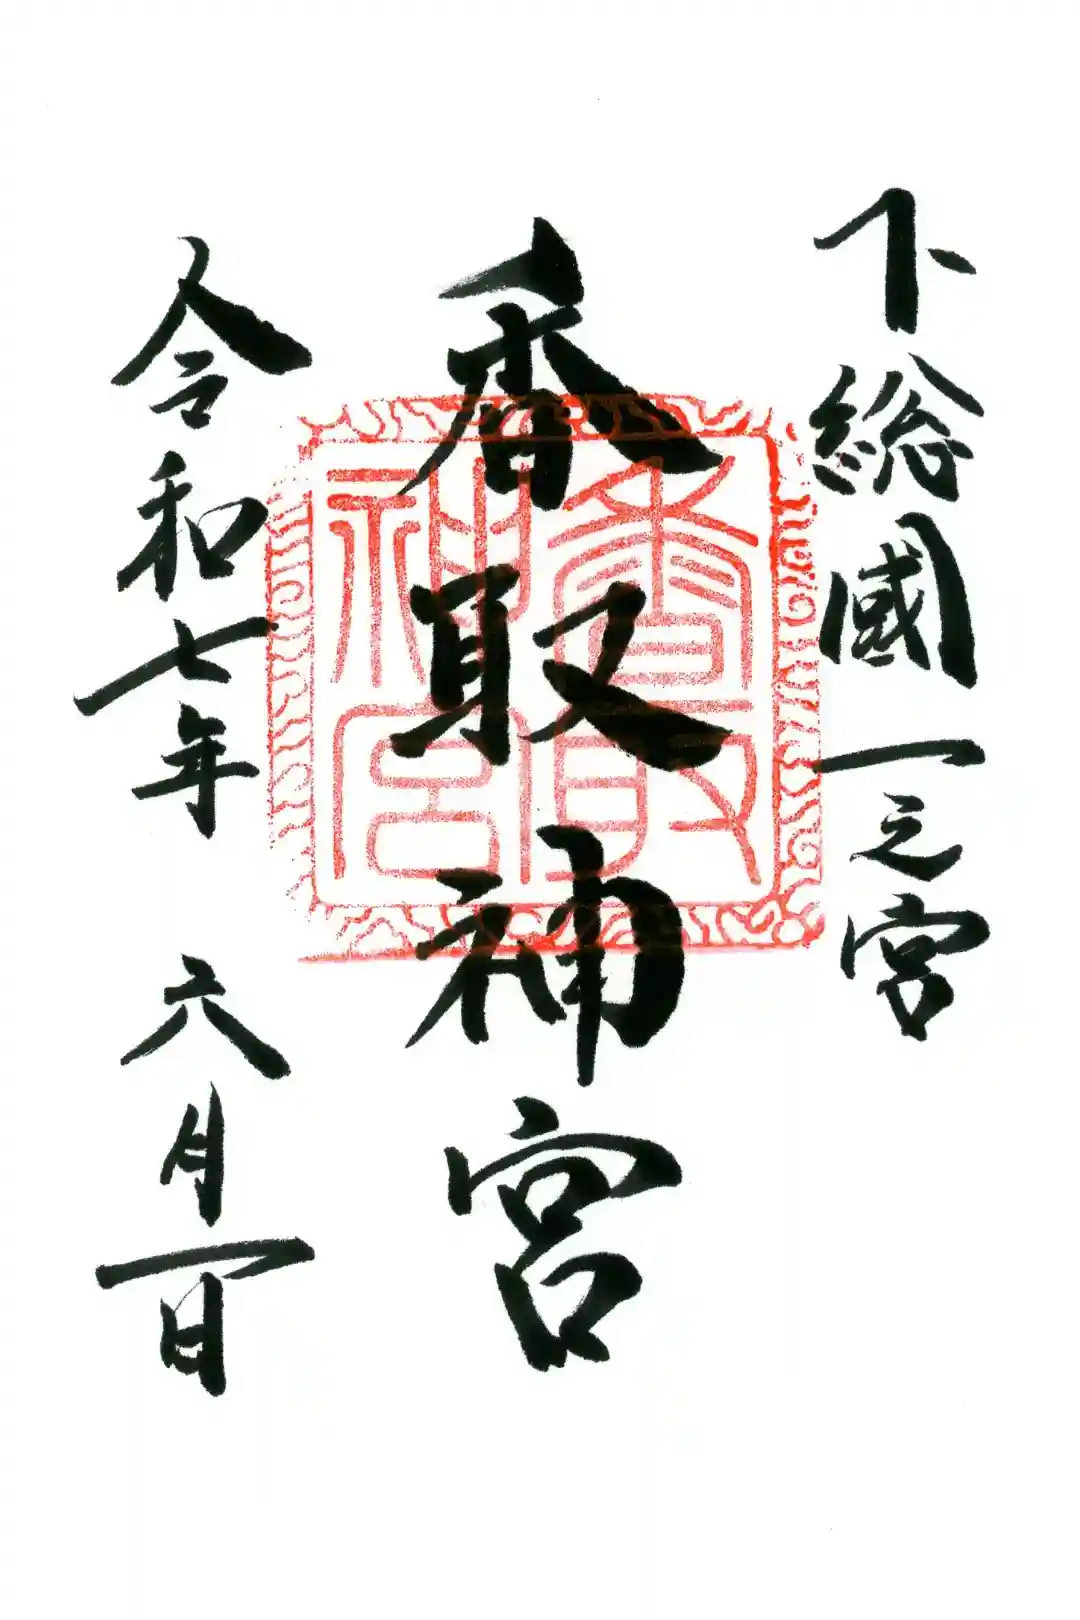 下総國一之宮
香取神宮
令和七年 六月一日
香取
神宮